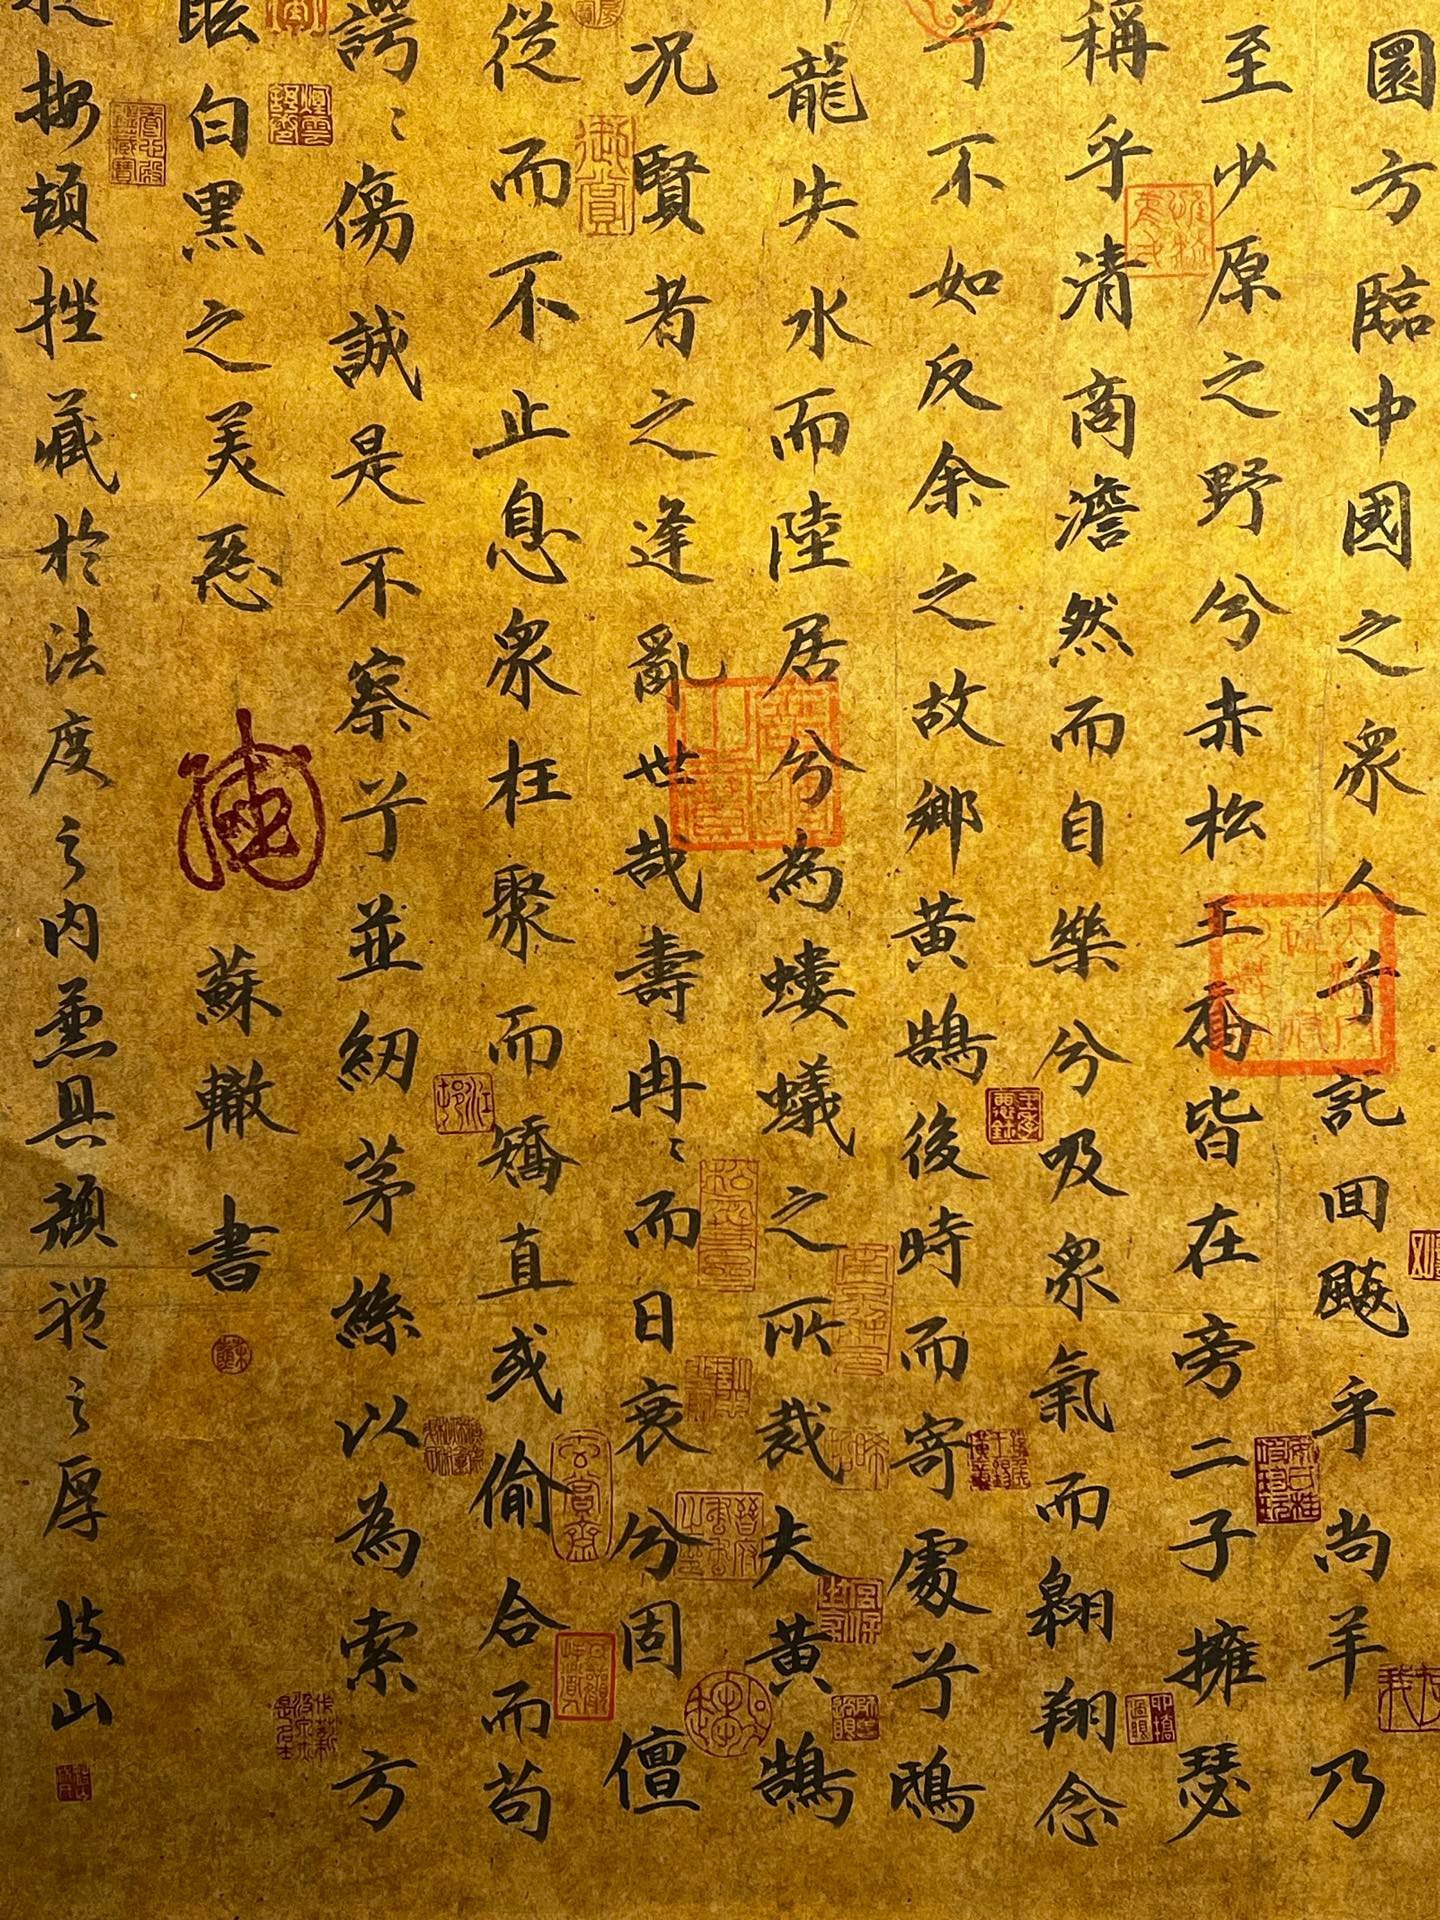 圜方臨中國之眾人兮託回飈乎尚羊乃
至少原之野兮赤松王喬皆在旁二子擁瑟
稱乎清商澹然而自樂兮吸眾氣而翱翔念
兮不如反余之故鄉黄鵠後時而寄處兮鴟
龍失水而陸居兮為螻蟻之所裁夫黄鵠
况賢者之逢亂世哉壽冉〻而日衰兮固儃
從而不止息眾枉聚而矯直或偷合而苟
諤〻傷誠是不察兮並紉茅絲以為索方
眩白黑之美惡 蘇轍書
按頓挫藏於法度之内兼具顔褚之厚 枝山
御賞